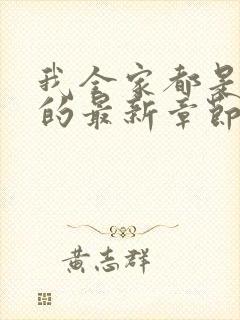 我全家都是
的最新章節
黃志群